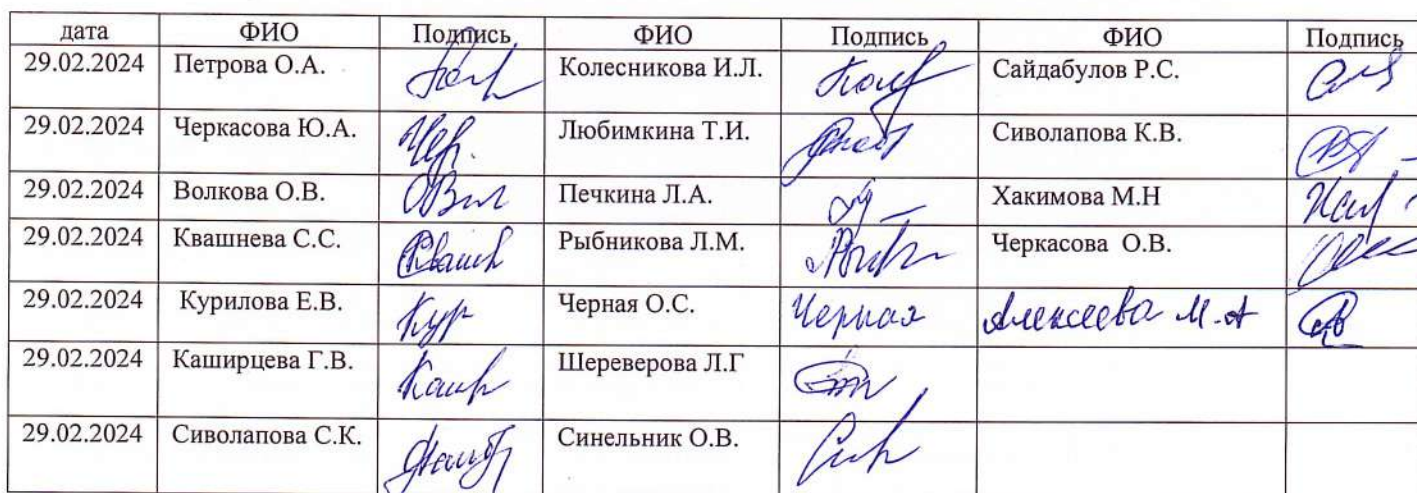 дата ФИО Подпись ФИО Подпись ФИО Подпись
29.02.2024 Петрова О.А. Колесникова И.Л. Сайдабулов Р.С.
29.02.2024 Черкасова Ю.А. Чер. Любимкина Т.И. Сиволапова К.В.
29.02.2024 Волкова О.В. Печкина Л.А. Хакимова М.Н
29.02.2024 Квашнева С.С. Рыбникова Л.М. Черкасова О.В.
29.02.2024 Курилова Е.В. Кур Черная О.С. Черная Алексеева М.А
29.02.2024 Каширцева Г.В. Шереверова Л.Г
29.02.2024 Сиволапова С.К. Синельник О.В.